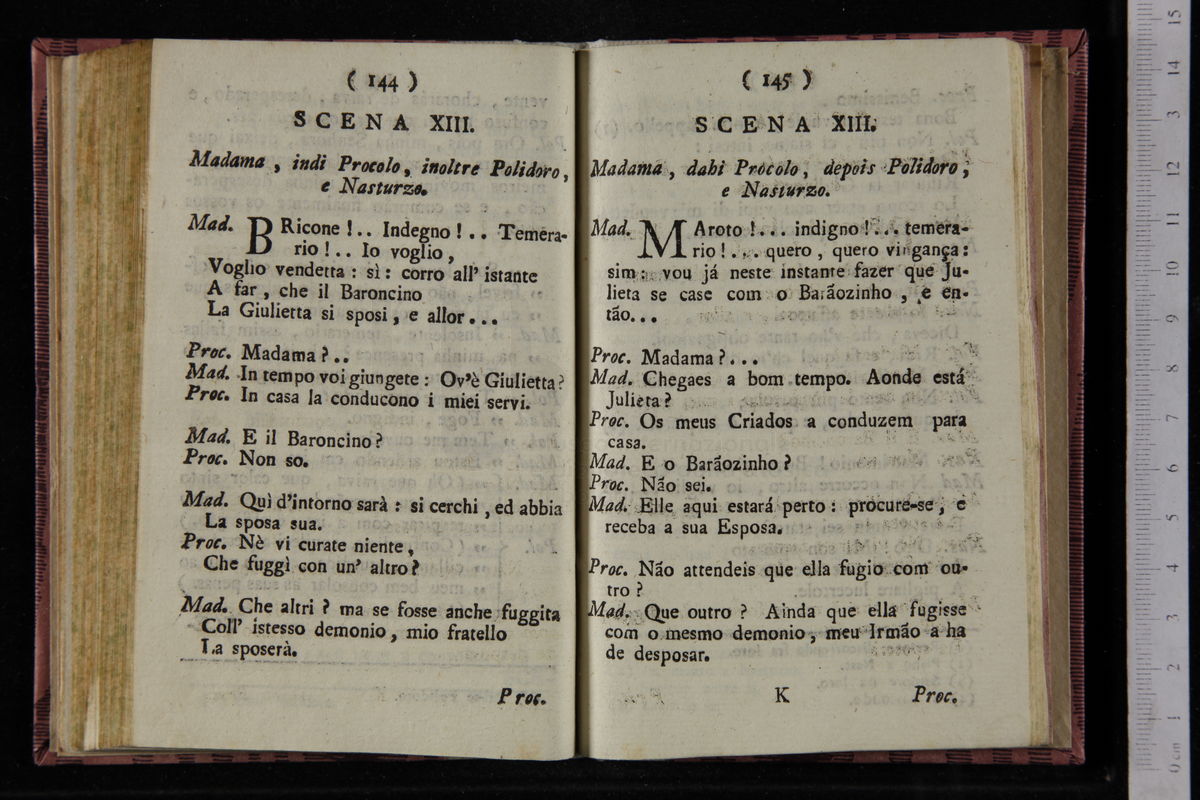 ( 144 )
SCENA XIII.
Madama , indi Procolo, inoltre Polidoro,
e Nasturzo.
Mad. BRicone !.. Indegno ! .. Temera-
rio !.. Io voglio ,
Voglio vendetta : sì : corro all' istante
A far , che il Baroncino
La Giulietta si sposi, e allor...
Proc. Madama ?..
Mad. In tempo voi giungete : Ov'è Giulietta?
Proc. In casa la conducono i miei servi.
Mad. E il Baroncino?
Proc. Non so.
Mad. Quì d'intorno sarà : si cerchi , ed abbia
La sposa sua.
Proc. Nè vi curate niente,
Che fuggì con un' altro?
Mad. Che altri ? ma se fosse anche fuggita
Coll' istesso demonio, mio fratello
La sposerà.
Proc.
( 145 )
SCENA XIII.
Madama , dahi Procolo, depois Polidoro,
e Nasturzo.
Mad. MAroto !... indigno !... temera-
rio !... quero , quero vingança :
sim : vou já neste instante fazer que Ju-
lieta se case com o Barãozinho , e en-
tão...
Proc. Madama ?...
Mad. Chegaes a bom tempo. Aonde está
Julieta ?
Proc. Os meus Criados a conduzem para
casa.
Mad. E o Barãozinho ?
Proc. Não sei.
Mad. Elle aqui estará perto : procure-se , e
receba a sua Esposa.
Proc. Não attendeis que ella fugio com ou-
tro ?
Mad. Que outro ? Ainda que ella fugisse
com o mesmo demonio, meu Irmão a ha
de desposar.
K Proc.
0 cm 1 2 3 4 5 6 7 8 9 10 11 12 13 14 15